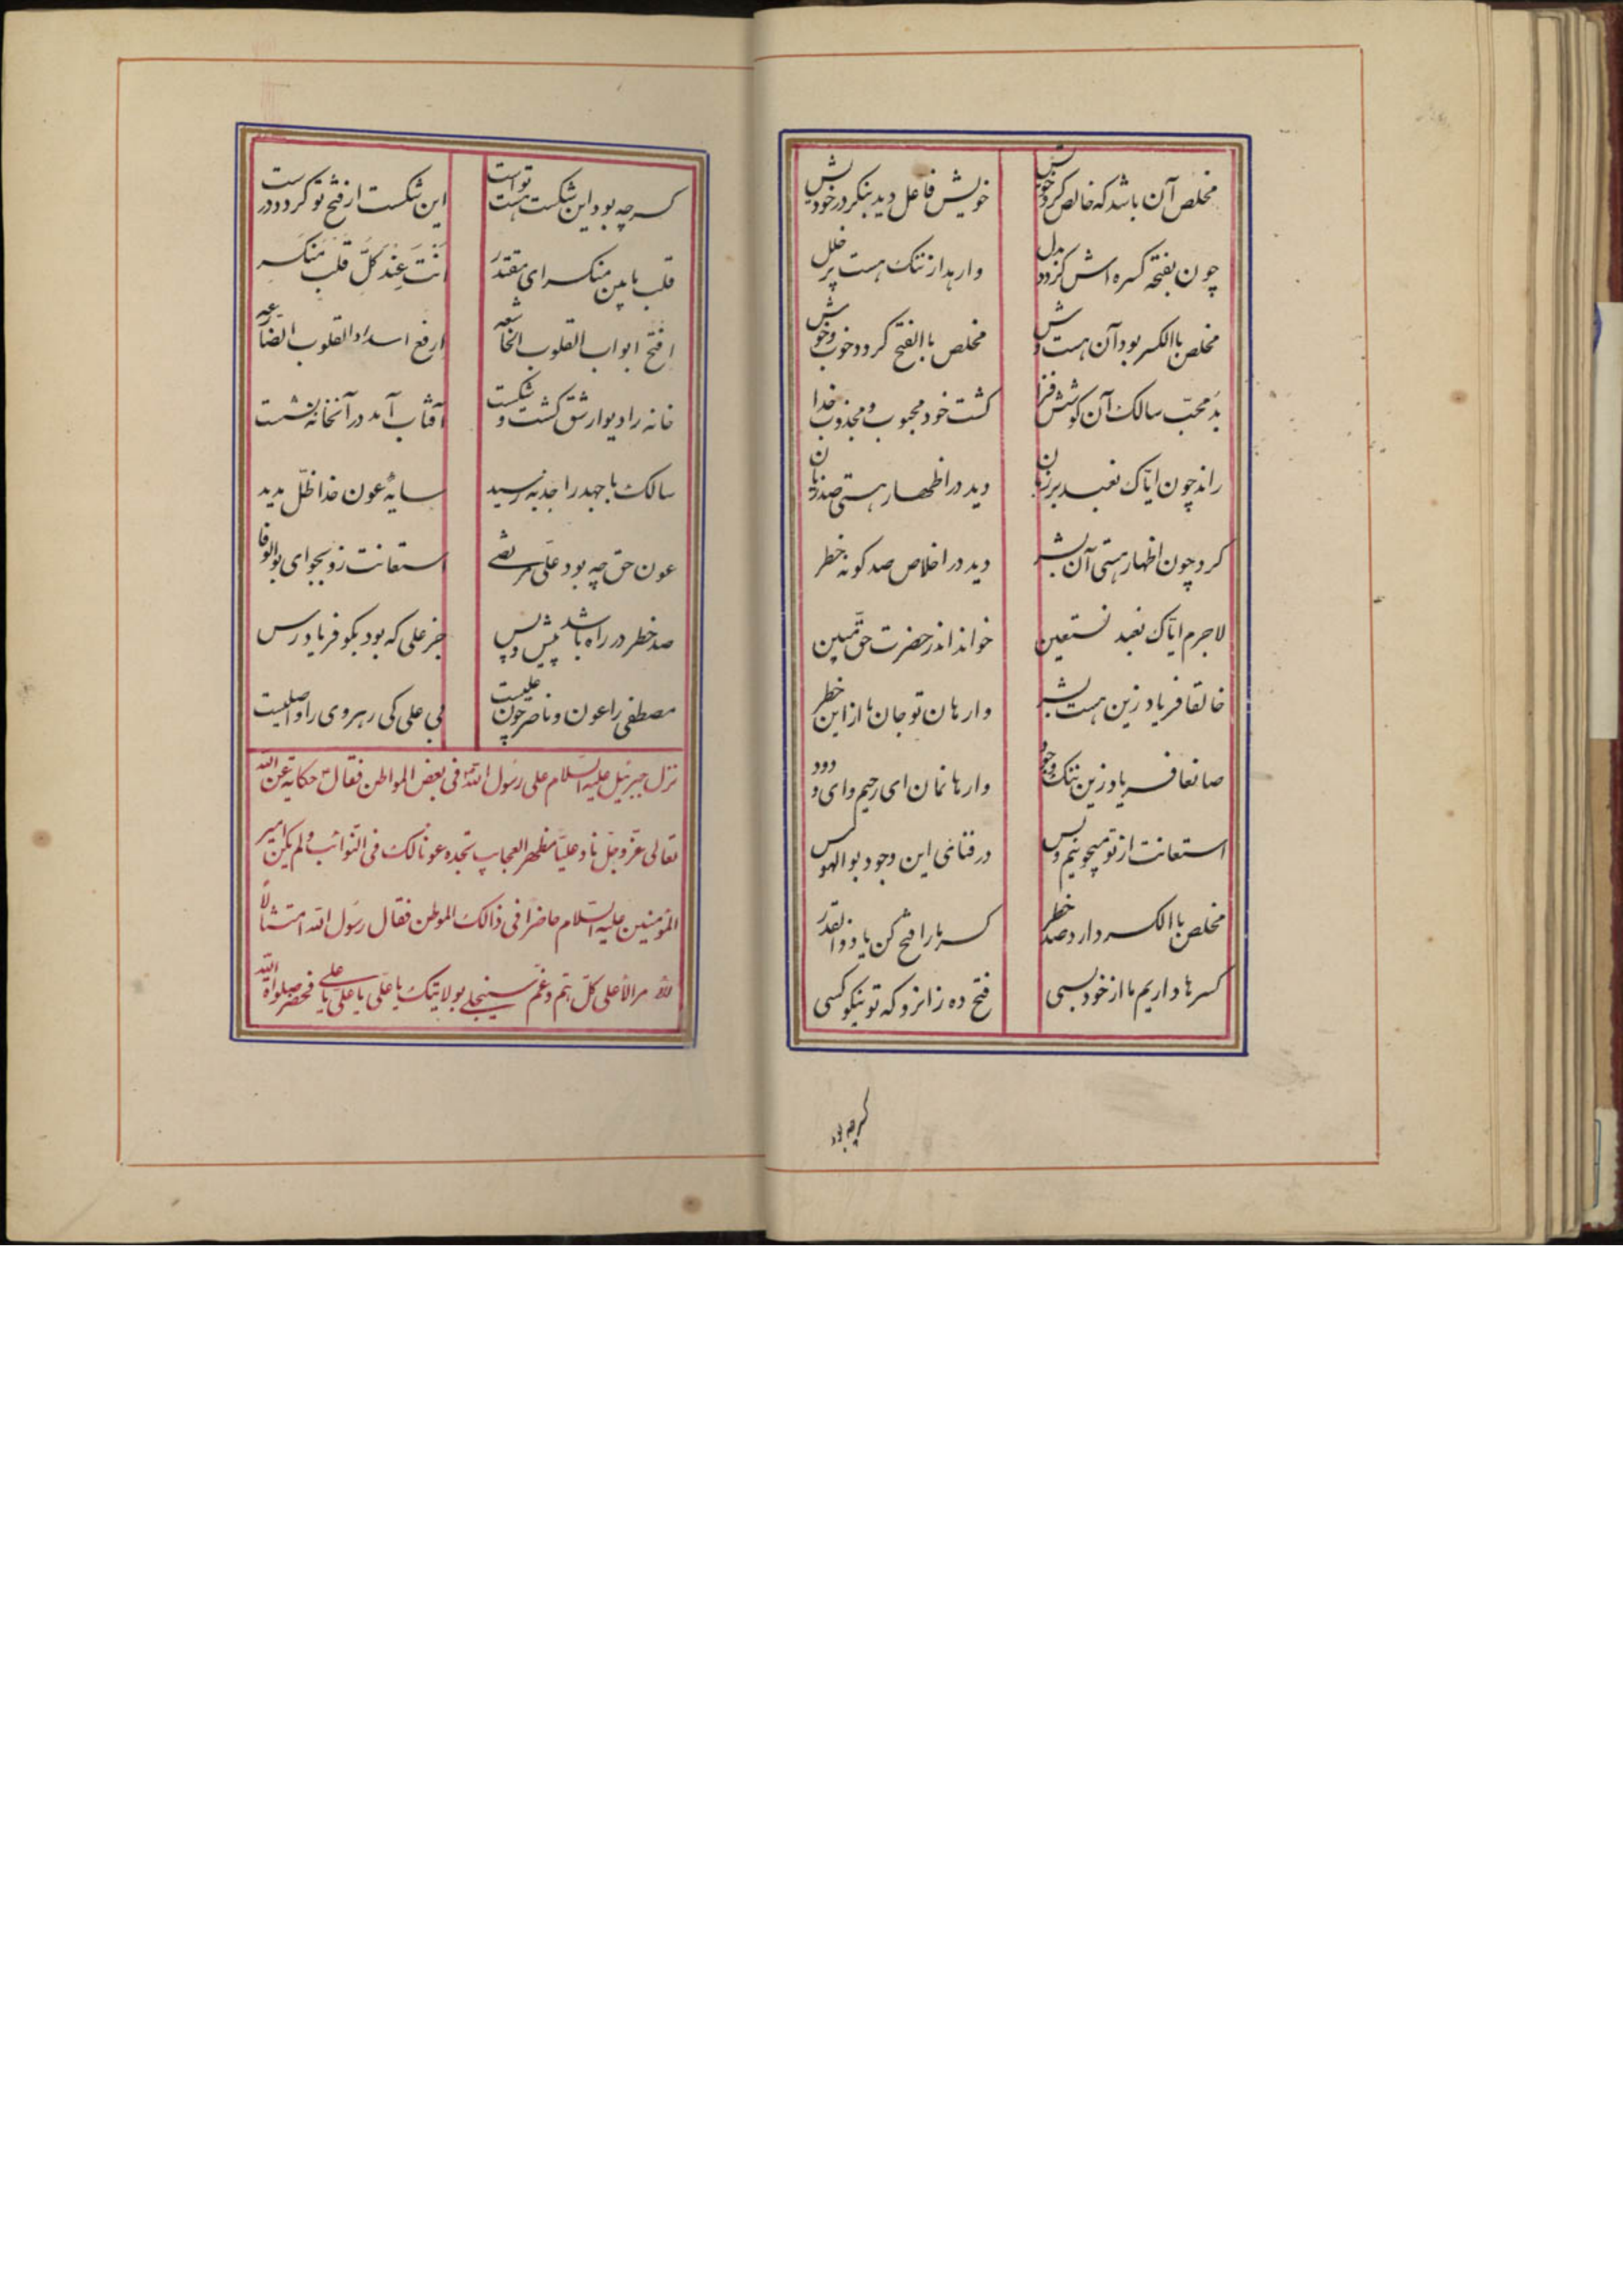 مخلص آن باشد که خالص کرد خویش خویش فاعل دید بنکر در خودیش
چون بفتحه کسره اش کردد بدل وارهد از ننک هست پر خلل
مخلص باالکسر بود آن هست وش مخلص باالفتح کردد خوب و خوش
بد محب سالک آن کوشش فزا کشت خود محبوب و مجذوب خدا
راند چون ایاک نعبد بر زبان دید در اظهار هستی صد زیان
کرد چون اظهار هستی آن بشر دید در اخلاص صد کونه خطر
لاجرم ایاک نعبد نستعین خواند اندر حضرت حق مبین
خالقا فریاد زین هست بشر وارهان تو جان ما از این خطر
صانعا فریاد زین ننک وجود وارهانمان ای رحیم و ای ودود
استعانت از تو میجوئیم و بس در فنای این وجود بوالهوس
مخلص باالکسر دارد صد خطر کسر ما را فتح کن یا ذوالقدر
کسرها داریم ما از خود بسی فتح ده زانرو که تو نیکو کسی
کسرچه بود
کسر چه بود این شکست هست تو است این شکست از فتح تو کردد درست
قلب ما بین منکسر ای مقتدر انت عند کل قلب منکسر
افتح ابواب القلوب الخاشعه ارفع اسداد القلوب الضارعه
خانه را دیوار شق کشت و شکست آفتاب آمد در آنخانه نشست
سالک با جهد را جذبه رسید سایهٔ عون خدا ظل مدید
عون حق چه بود علی مرتضی استعانت زو بجو ای بوالوفا
صد خطر در راه باشد پیش و پس جز علی که بود بکو فریادرس
مصطفی را عون و ناصر چون علیست بی علی کی رهروی را واصلیست
نزل جبرئیل علیه السلام علی رسول الله فی بعض المواطن فقال حکایة عن الله
تعالی عز و جل ناد علیا مظهر العجایب تجده عونا لک فی النوائب و لم یکن امیر
المؤمنین علیه السلام حاضرا فی ذالک الموطن فقال رسول الله امتثالا
لأمر الأعلی کل هم و غم سینجلی بولایتک یا علی یا علی یا علی فحضر صلواة الله